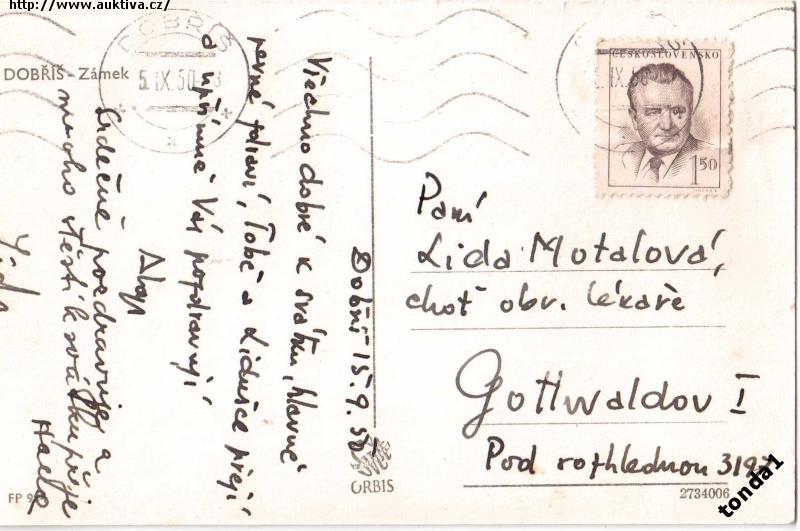 http://www.auktiva.cz/
DOBŘÍŠ - Zámek
DOBŘÍŠ
5. IX. 50
ČESKOSLOVENSKO
IX. 50
1 50
Všechno dobré k svátku, hlavně
pevné zdraví, Tobě a Lidušce přejí
a upřímně Vás pozdravují
Srdečně pozdravuje a
mnoho štěstí k svátku přeje
Dobříš 15. 9. 50
Paní
Lida Motalová,
choť obv. lékaře
Gottwaldov I
Pod rozhlednou
ORBIS
2734006
tonda1